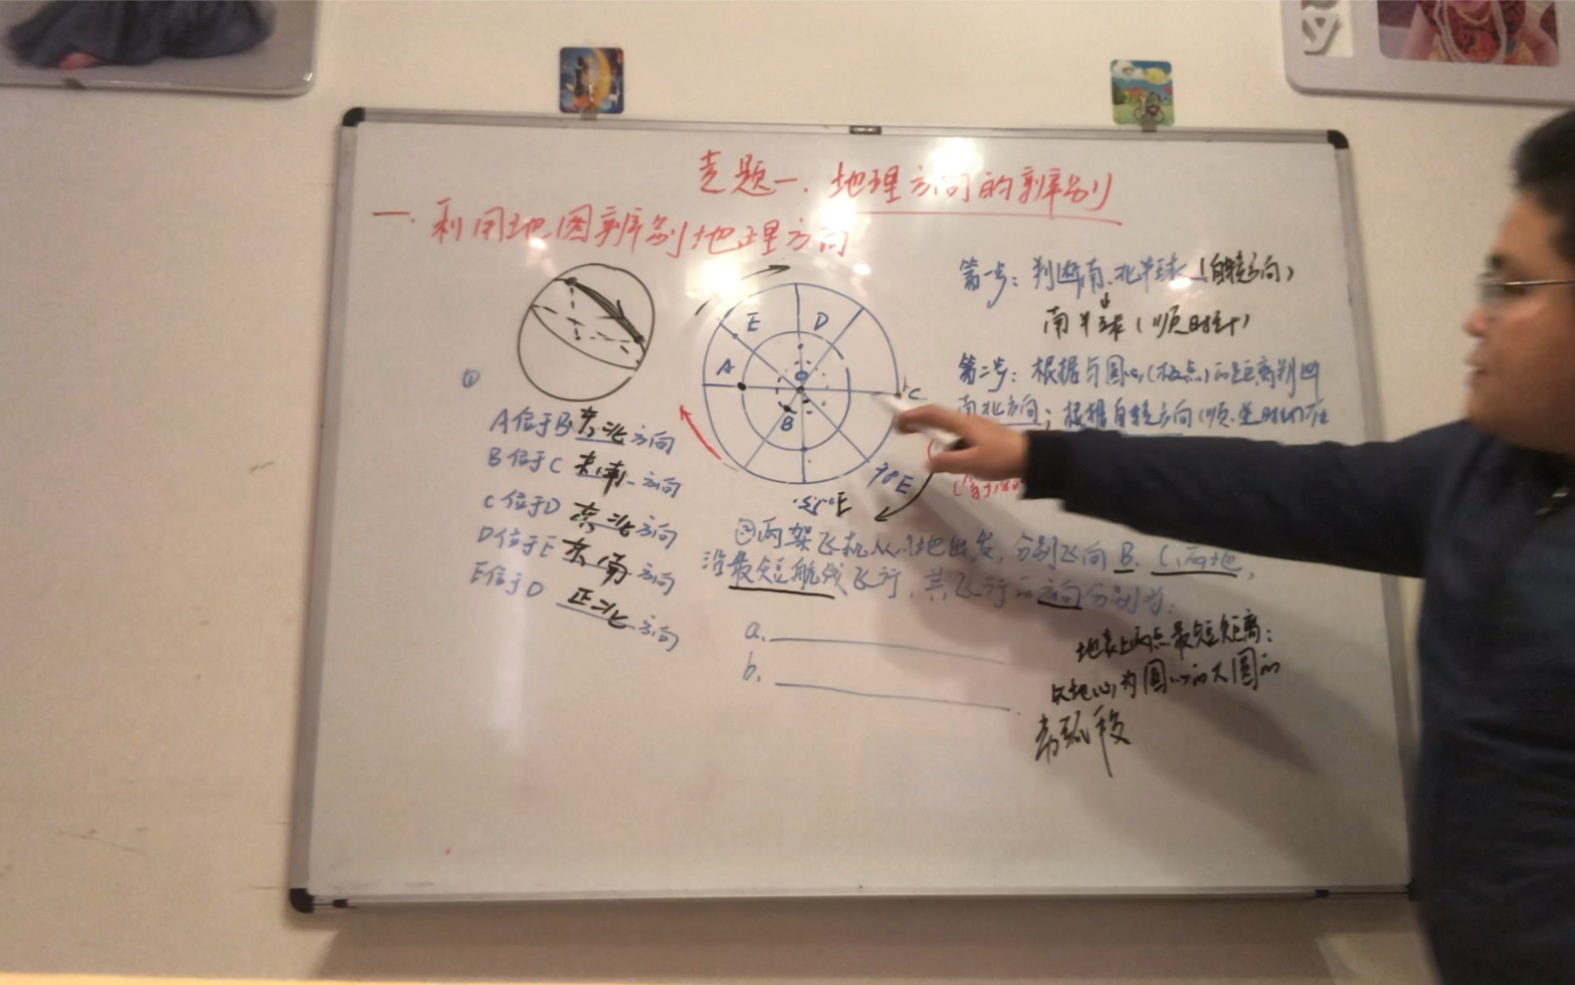 y
专题一、地理方向的辨别
一、利用地图辨别地理方向
第一步：判断南、北半球（自转方向）
南半球（顺时针）
第二步：根据与圆心（极点）的距离判断
南北方向；根据自转方向（顺、逆时针）
E
D
A
O
C
B
90°E
E
①
A位于B东北方向
B位于C东南方向
C位于D东北方向
D位于E东南方向
E位于D正北方向
②两架飞机从A地出发，分别飞向B、C两地，
沿最短航线飞行，其飞行的方向分别为：
a.
b.
地表上两点最短距离：
以地心为圆心的大圆的
劣弧段